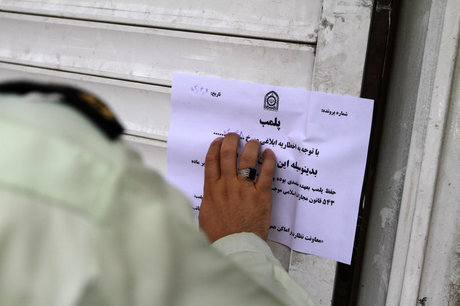 شماره پرونده:
تاریخ:
پلمب
با توجه به اخطاریه ابلاغی
بدینوسیله این
ماده
حفظ پلمب بعهده متصدی بوده
۵۴۳ قانون مجازات اسلامی موجب
«معاونت نظارت بر اماکن عمو